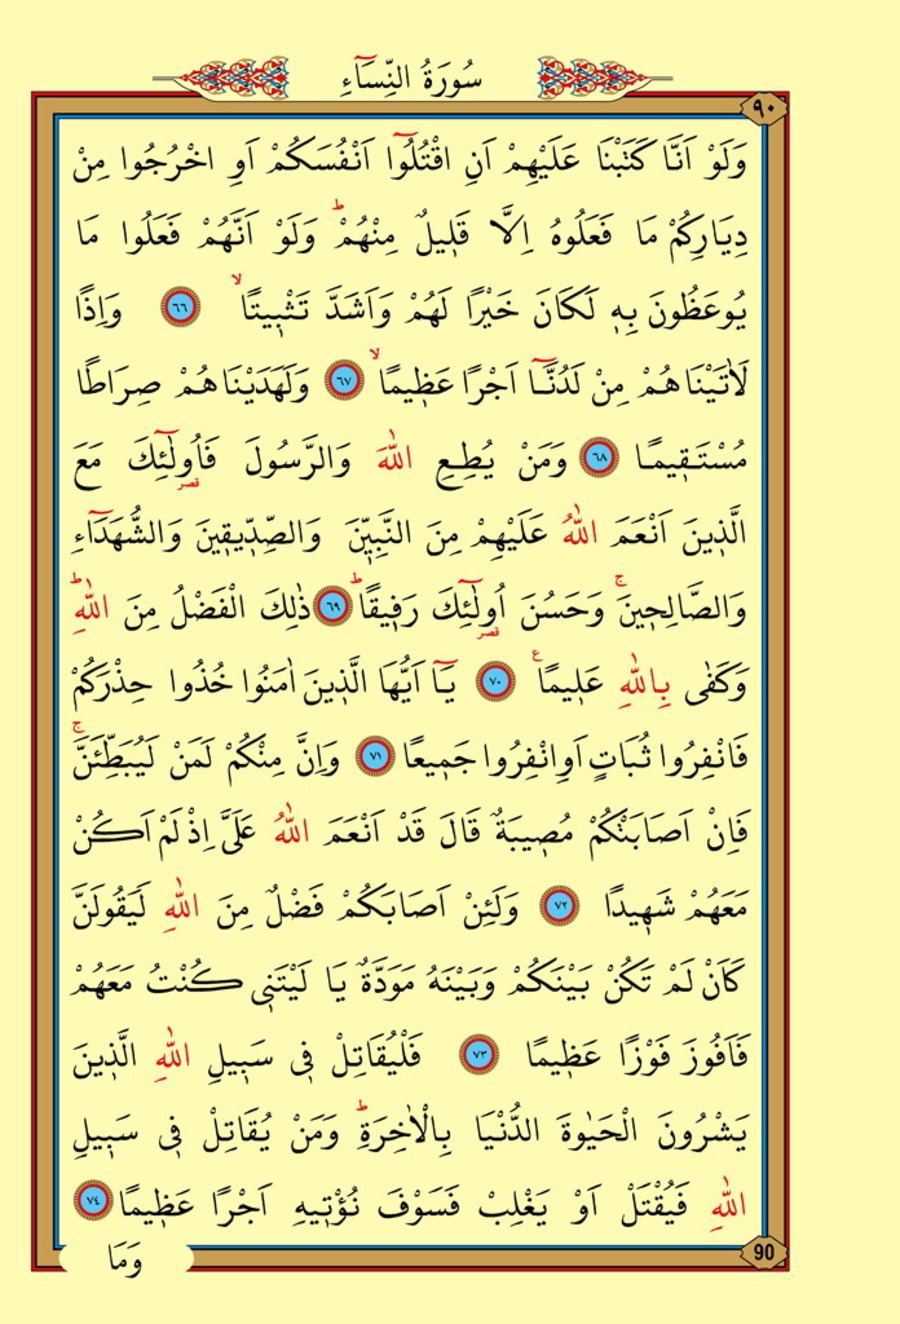 سُورَةُ النِّسَٓاءِ
٩٠
وَلَوْ اَنَّا كَتَبْنَا عَلَيْهِمْ اَنِ اقْتُلُٓوا اَنْفُسَكُمْ اَوِ اخْرُجُوا مِنْ
دِيَارِكُمْ مَا فَعَلُوهُ اِلَّا قَل۪يلٌ مِنْهُمْۜ وَلَوْ اَنَّهُمْ فَعَلُوا مَا
يُوعَظُونَ بِه۪ لَكَانَ خَيْرًا لَهُمْ وَاَشَدَّ تَثْب۪يتًاۙ ٦٦ وَاِذًا
لَاٰتَيْنَاهُمْ مِنْ لَدُنَّٓا اَجْرًا عَظ۪يمًاۙ ٦٧ وَلَهَدَيْنَاهُمْ صِرَاطًا
مُسْتَق۪يمًا ٦٨ وَمَنْ يُطِعِ اللّٰهَ وَالرَّسُولَ فَاُو۬لٰٓئِكَ مَعَ
قصر
الَّذ۪ينَ اَنْعَمَ اللّٰهُ عَلَيْهِمْ مِنَ النَّبِيّ۪نَ وَالصِّدّ۪يق۪ينَ وَالشُّهَدَٓاءِ
وَالصَّالِح۪ينَۚ وَحَسُنَ اُو۬لٰٓئِكَ رَف۪يقًاۜ ٦٩ ذٰلِكَ الْفَضْلُ مِنَ اللّٰهِۜ
قصر
وَكَفٰى بِاللّٰهِ عَل۪يمًاع ٧٠ يَٓا اَيُّهَا الَّذ۪ينَ اٰمَنُوا خُذُوا حِذْرَكُمْ
فَانْفِرُوا ثُبَاتٍ اَوِ انْفِرُوا جَم۪يعًا ٧١ وَاِنَّ مِنْكُمْ لَمَنْ لَيُبَطِّئَنَّۚ
فَاِنْ اَصَابَتْكُمْ مُص۪يبَةٌ قَالَ قَدْ اَنْعَمَ اللّٰهُ عَلَيَّ اِذْ لَمْ اَكُنْ
مَعَهُمْ شَه۪يدًا ٧٢ وَلَئِنْ اَصَابَكُمْ فَضْلٌ مِنَ اللّٰهِ لَيَقُولَنَّ
كَاَنْ لَمْ تَكُنْ بَيْنَكُمْ وَبَيْنَهُ مَوَدَّةٌ يَا لَيْتَن۪ي كُنْتُ مَعَهُمْ
فَاَفُوزَ فَوْزًا عَظ۪يمًا ٧٣ فَلْيُقَاتِلْ ف۪ي سَب۪يلِ اللّٰهِ الَّذ۪ينَ
يَشْرُونَ الْحَيٰوةَ الدُّنْيَا بِالْاٰخِرَةِۜ وَمَنْ يُقَاتِلْ ف۪ي سَب۪يلِ
اللّٰهِ فَيُقْتَلْ اَوْ يَغْلِبْ فَسَوْفَ نُؤْت۪يهِ اَجْرًا عَظ۪يمًا ٧٤
وَمَا
90